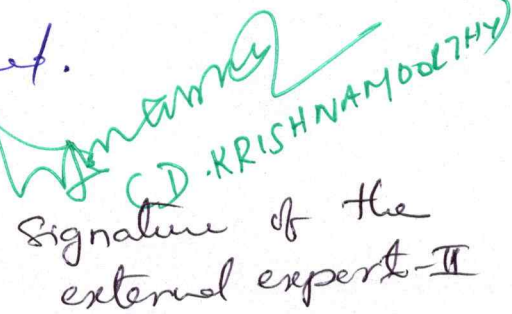 (D.KRISHNAMOORTHY)
Signature of the
external expert-II